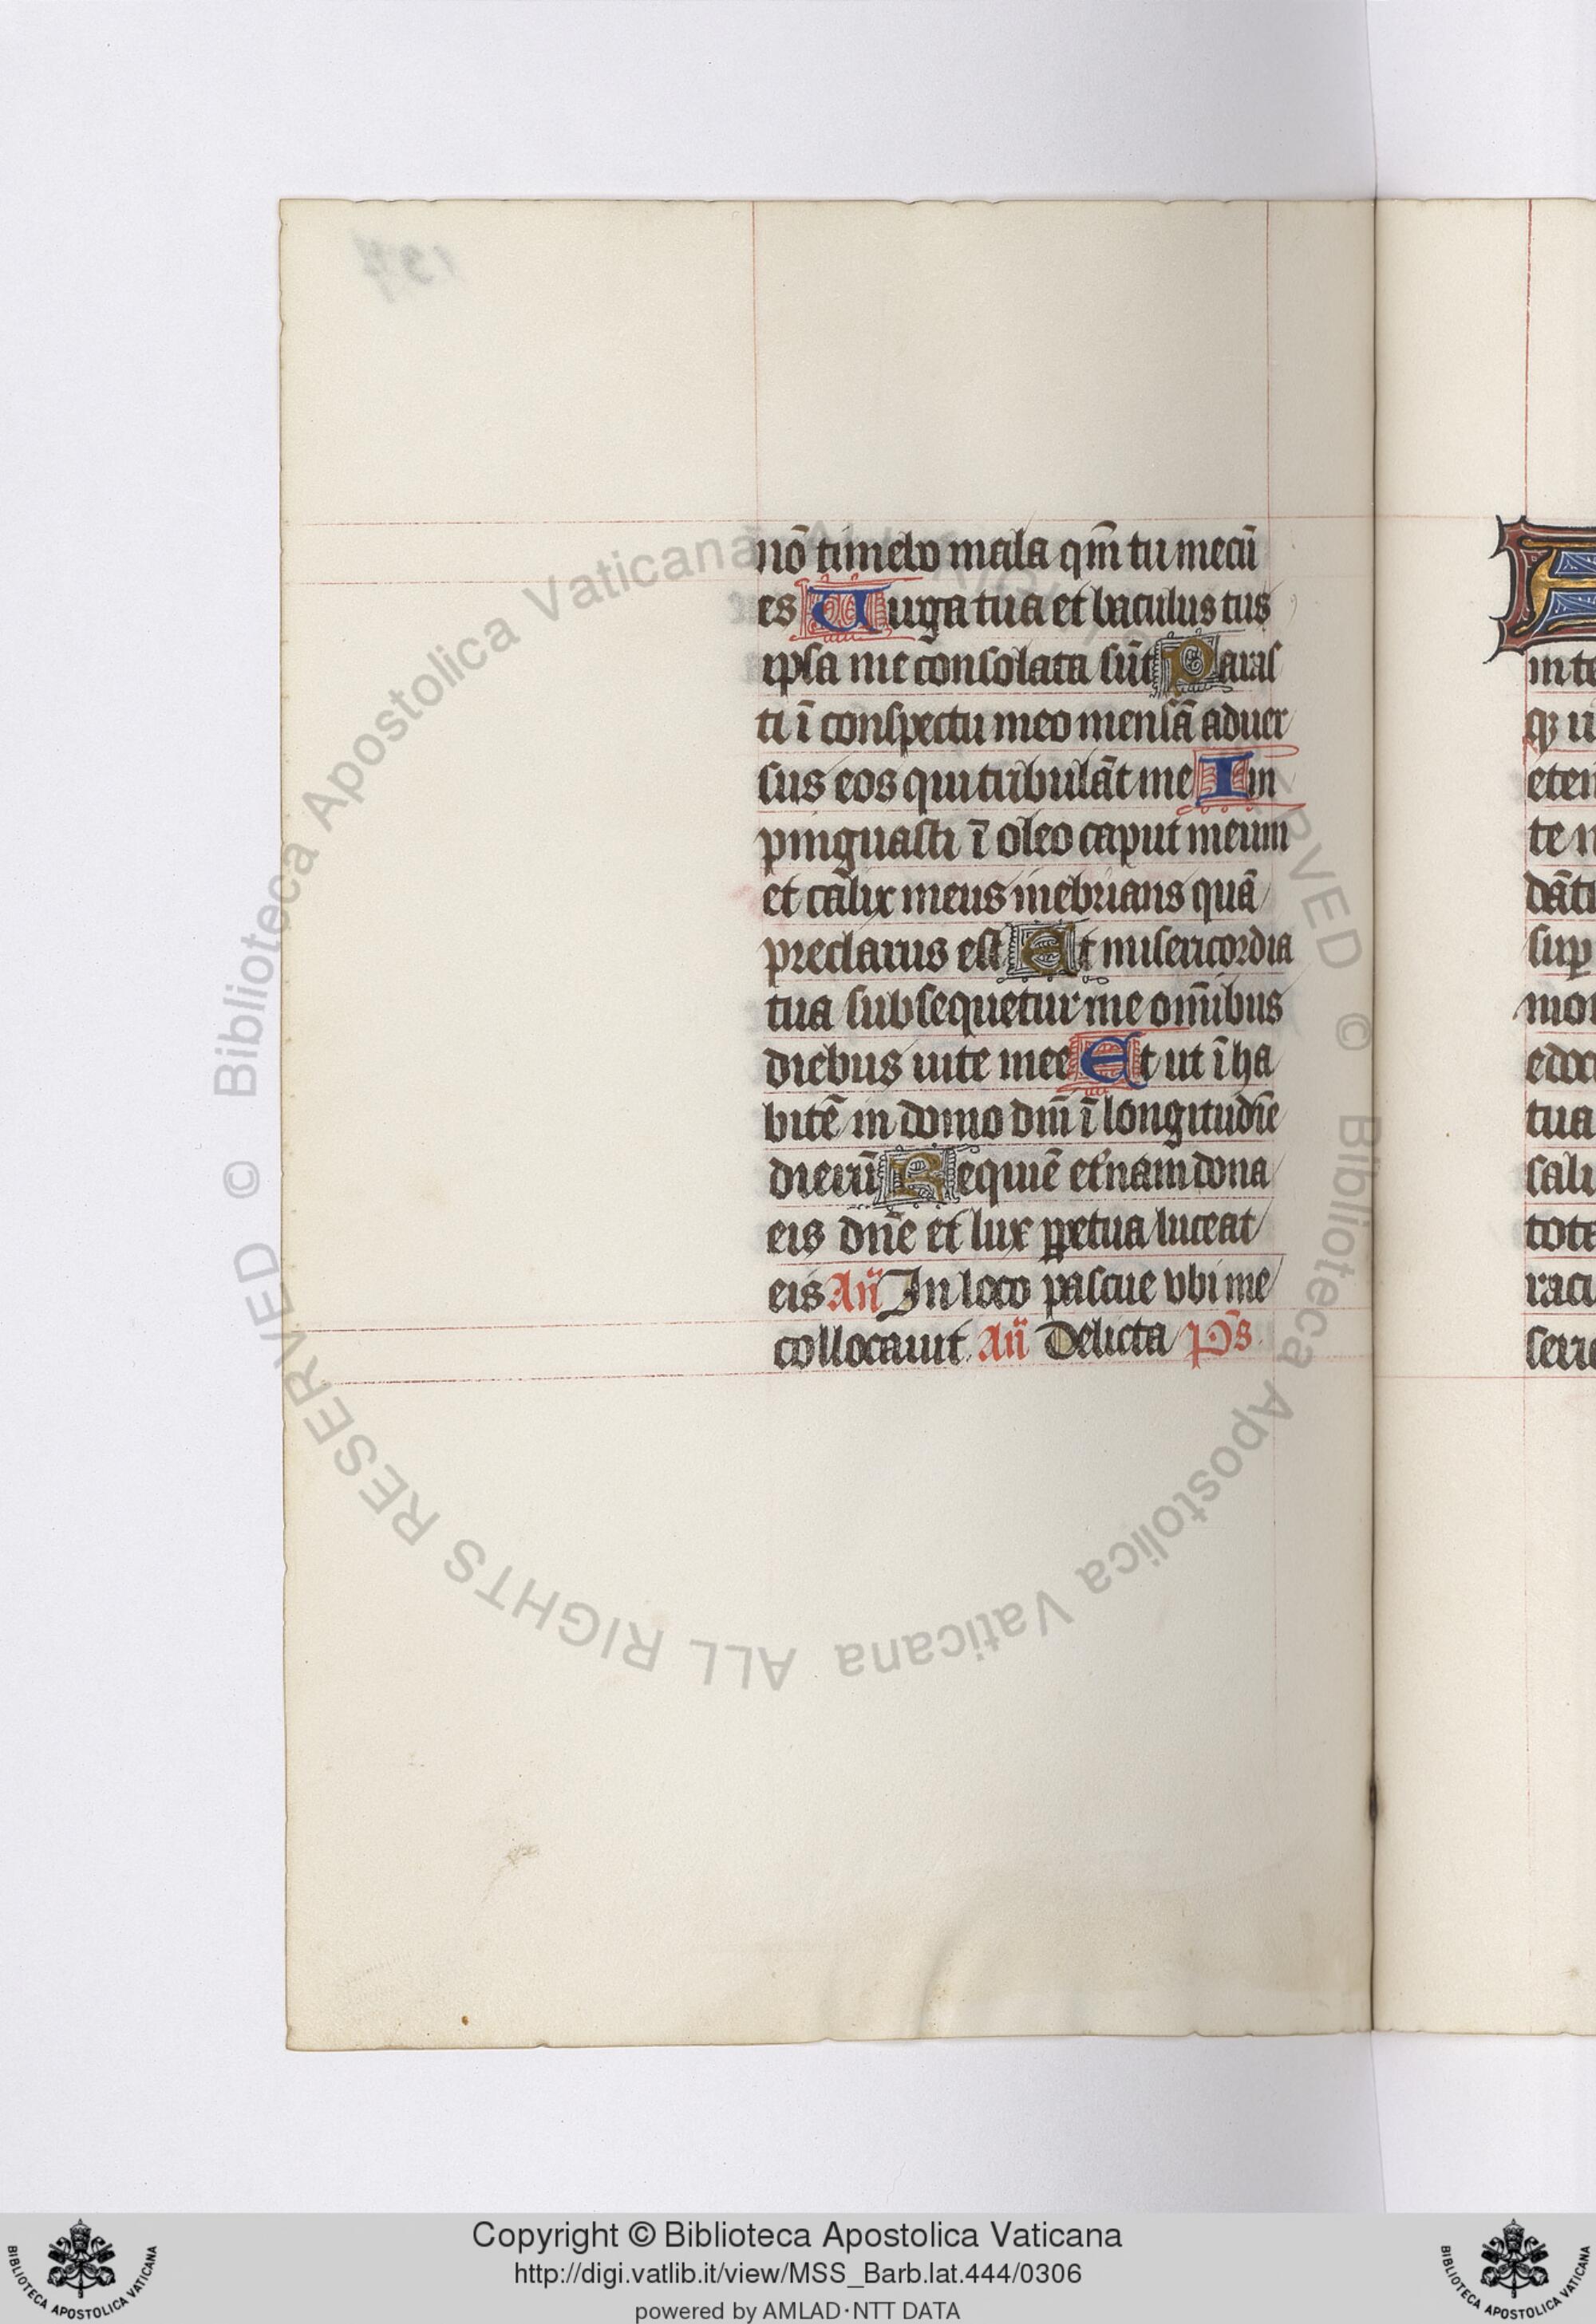 nō timebo mala qm̄ tu mecū
es Uirga tua et baculus tus
ipsa me consolata sūt Paras
ti ī conspectu meo mensā aduer
sus eos qui tribulāt me Im
pinguasti ī oleo caput meum
et calix meus inebrians quā
preclarus est Et misericordia
tua subsequetur me om̄ibus
diebus uite mee Et ut īha
bitē in domo dn̄i ī longitudīe
dierū Requiē et̄nam dona
eis dn̄e et lux ꝑpetua luceat
eis An̄ In loco pascue vbi me
collocauit An̄ Delicta p̄s
in te
qꝫ u
eten
te n
dāti
suꝑ
mon
edoc
tua
salu
tota
raci
serie
© Biblioteca Apostolica Vaticana ALL RIGHTS RESERVED © Biblioteca Apostolica Vaticana ALL RIGHTS RESERVED
Copyright © Biblioteca Apostolica Vaticana
http://digi.vatlib.it/view/MSS_Barb.lat.444/0306
powered by AMLAD·NTT DATA
BIBLIOTECA APOSTOLICA VATICANA
BIBLIOTECA APOSTOLICA VATICANA